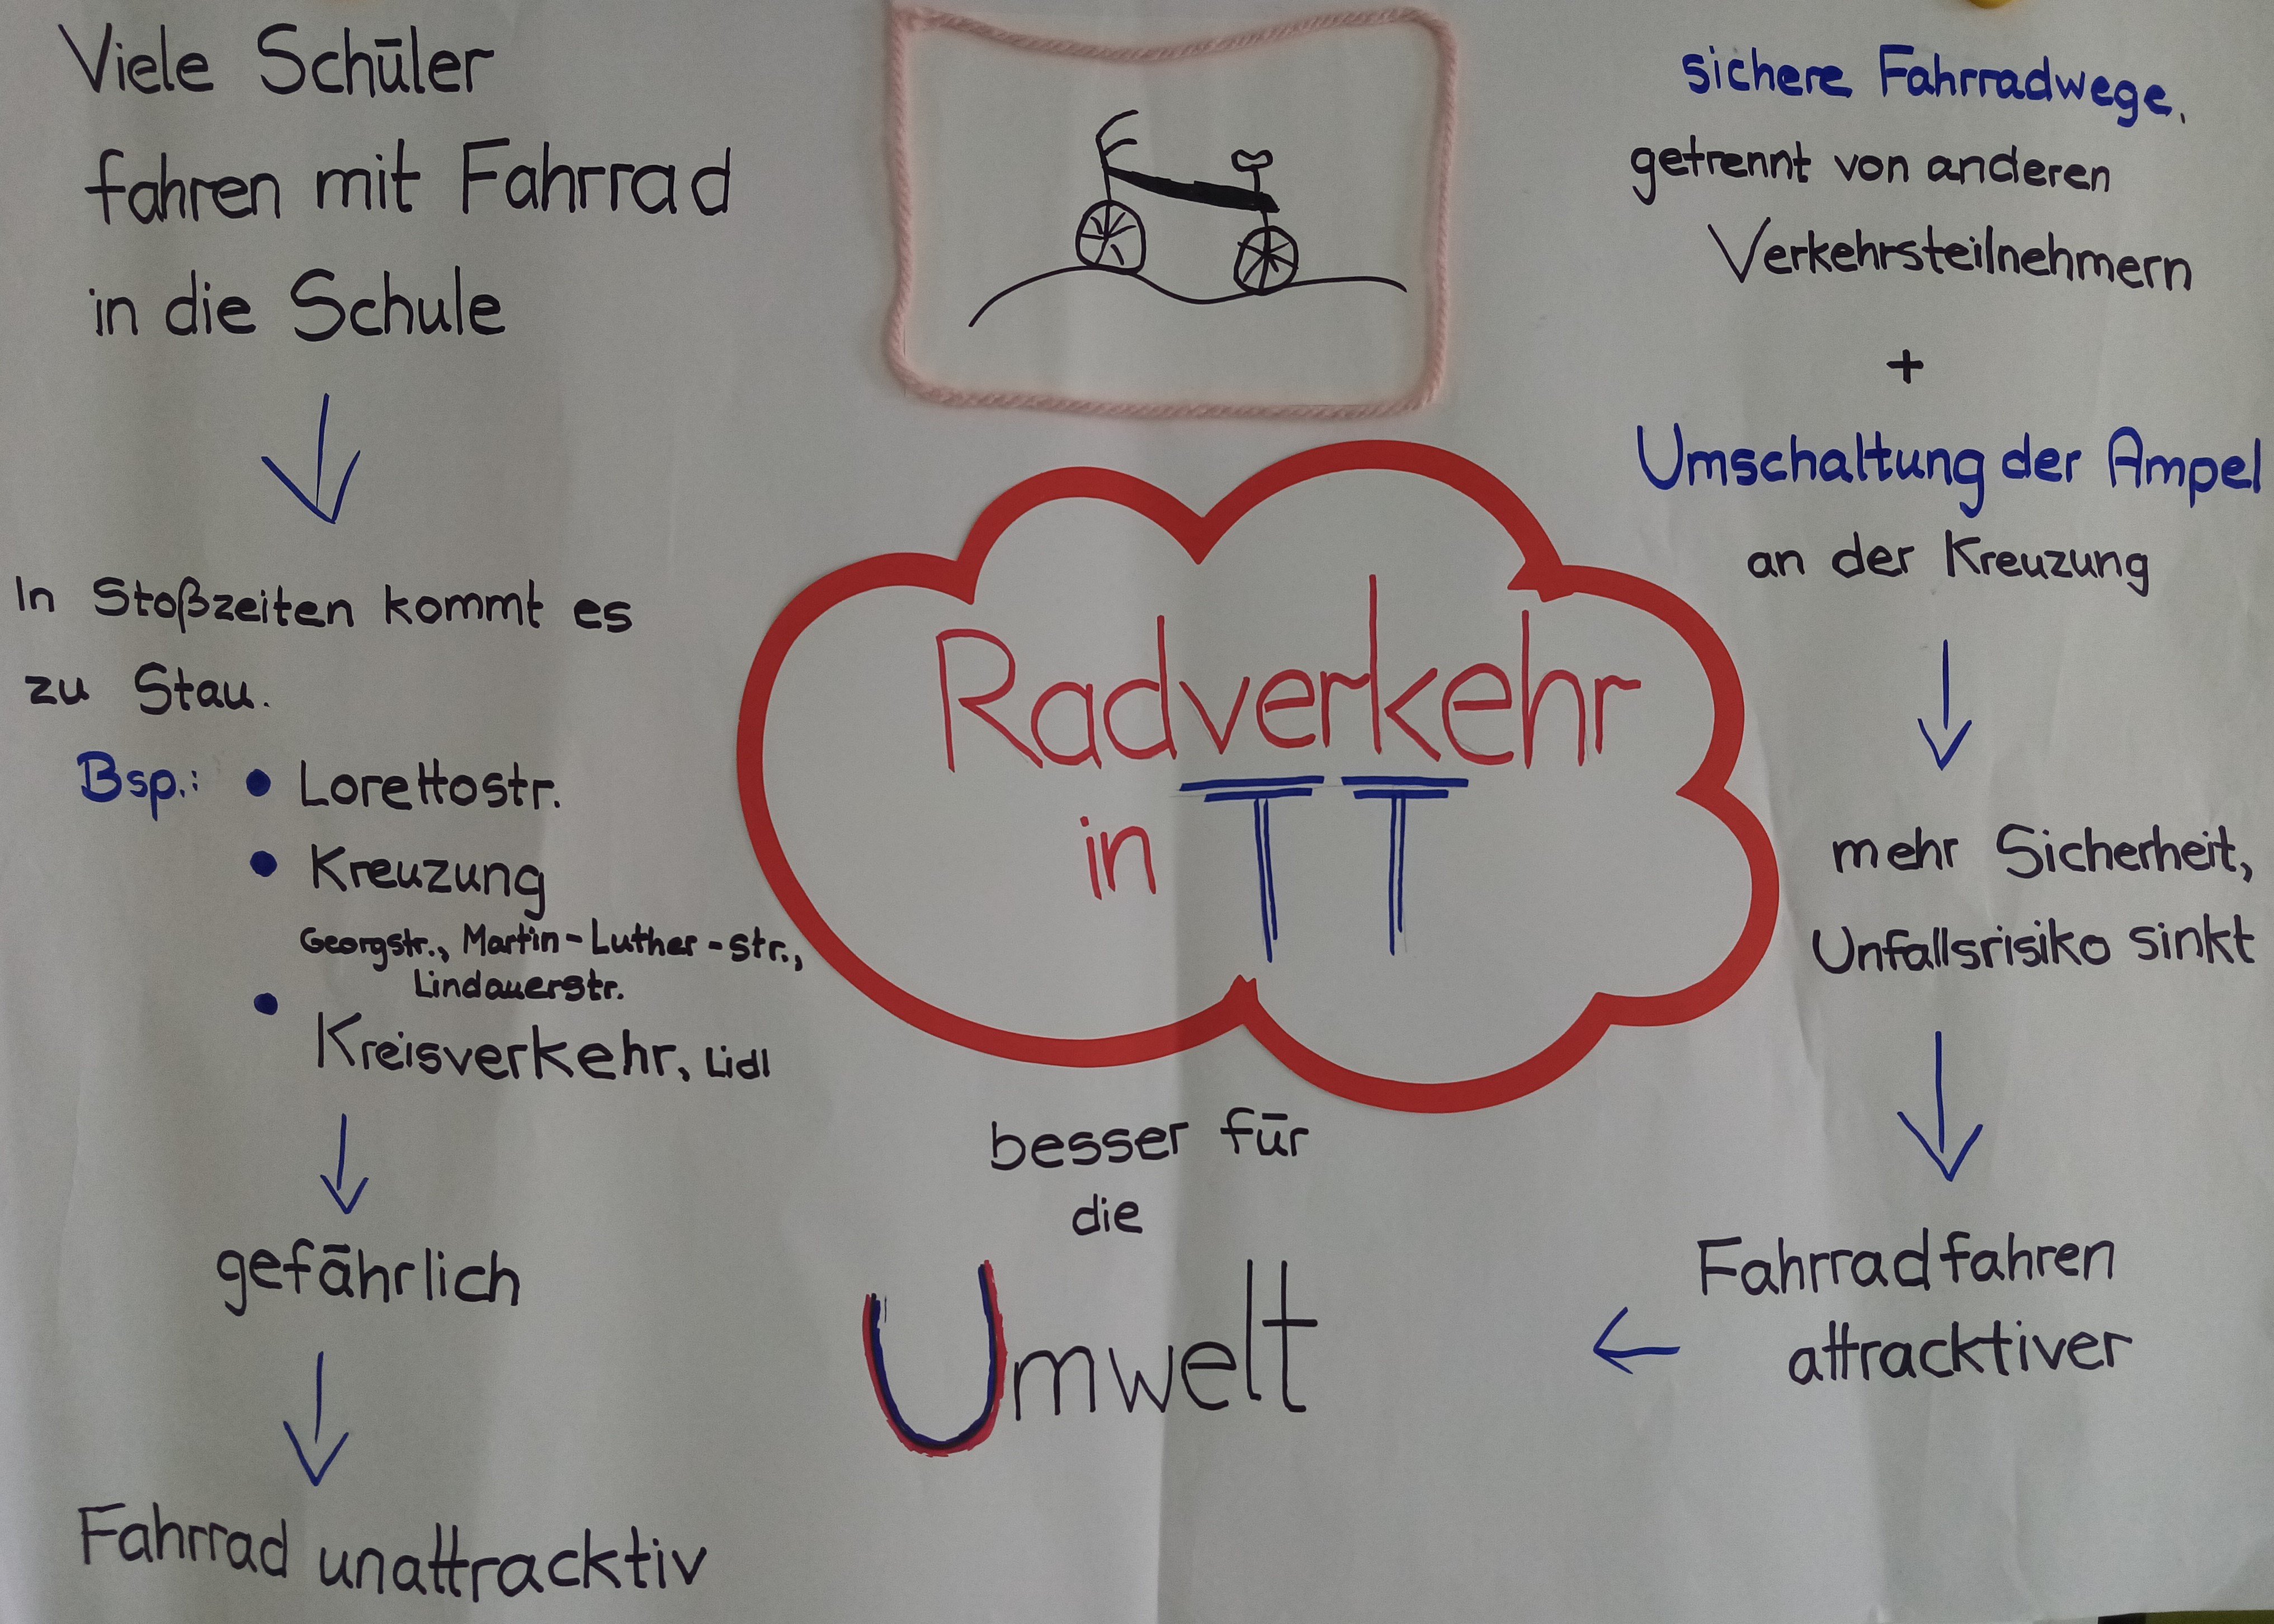 Viele Schüler
fahren mit Fahrrad
in die Schule
In Stoßzeiten kommt es
zu Stau.
Bsp.: • Lorettostr.
• Kreuzung
Georgstr., Martin-Luther-str.,
Lindauerstr.
• Kreisverkehr, Lidl
gefährlich
Fahrrad unattracktiv
Radverkehr
in TT
besser für
die
Umwelt
sichere Fahrradwege,
getrennt von anderen
Verkehrsteilnehmern
+
Umschaltung der Ampel
an der Kreuzung
mehr Sicherheit,
Unfallsrisiko sinkt
Fahrradfahren
attracktiver